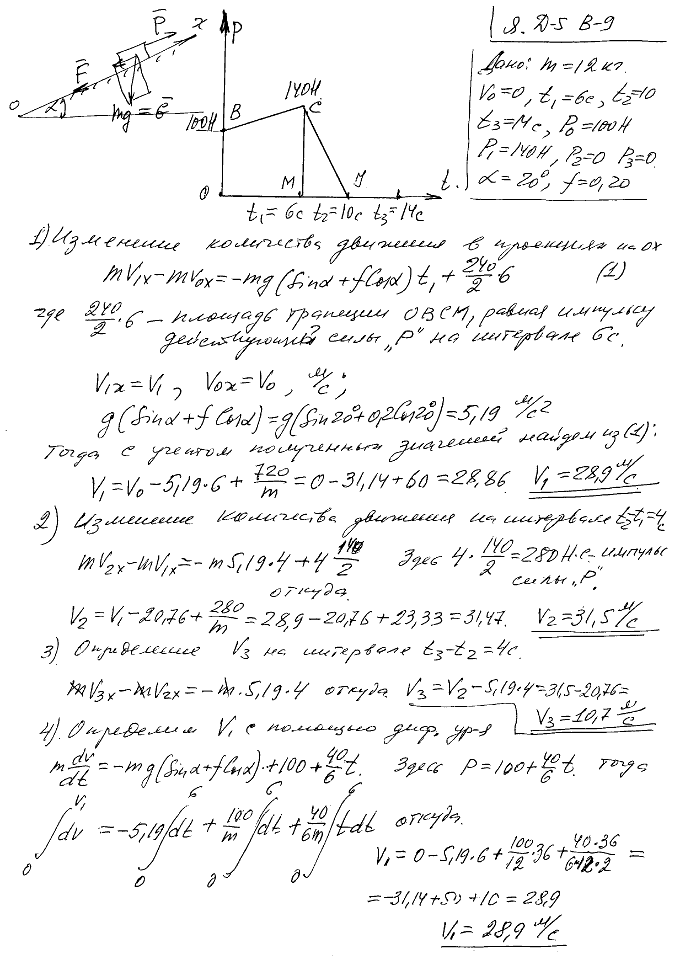 Я. Д-5 В-9
P̄ x P
F̄ α mg = Ḡ O
100Н B 140Н C
O M t.
t₁ = 6с t₂=10с t₃=14с
Дано: m = 12 кг.
V₀=0, t₁=6с, t₂=10
t₃=14с, P₀=100Н
P₁=140Н, P₂=0 P₃=0
α=20°, f=0,20
1) Изменение количества движения в проекциях на ох
mV₁ₓ-mV₀ₓ=-mg(Sinα+fCosα)t₁+240/2·6 (1)
где 240/2·6 – площадь трапеции ОВСМ, равная импульсу
действующей силы „P" на интервале 6с.
V₁ₓ=V₁, V₀ₓ=V₀, м/с;
g(Sinα+fCosα)=g(Sin20°+0,2Cos20°)=5,19 м/с²
Тогда с учетом полученных значений найдем из (1):
V₁=V₀-5,19·6+720/m=0-31,14+60=28,86. V₁=28,9 м/с
2) Изменение количества движения на интервале t₂-t₁=4с
mV₂ₓ-mV₁ₓ=-m5,19·4+4 140/2 Здес 4·140/2=280Н·с-импульс
силы „P".
откуда.
V₂=V₁-20,76+280/m=28,9-20,76+23,33=31,47. V₂=31,5 м/с
3) Определение V₃ на интервале t₃-t₂=4с.
mV₃ₓ-mV₂ₓ=-m·5,19·4 откуда V₃=V₂-5,19·4=31,5-20,76=
V₃=10,7 м/с
4). Определим V₁ с помощью диф. ур-я
m dv/dt=-mg(Sinα+fCosα)+100+40/6 t. Здесь P=100+40/6 t. тогда
∫₀^V₁ dv = -5,19∫₀^6 dt + 100/m ∫₀^6 dt + 40/6m ∫₀^6 tdt откуда.
V₁=0-5,19·6+100/12·36+40·36/6·12·2 =
=-31,14+50+10=28,9
V₁= 28,9 м/с